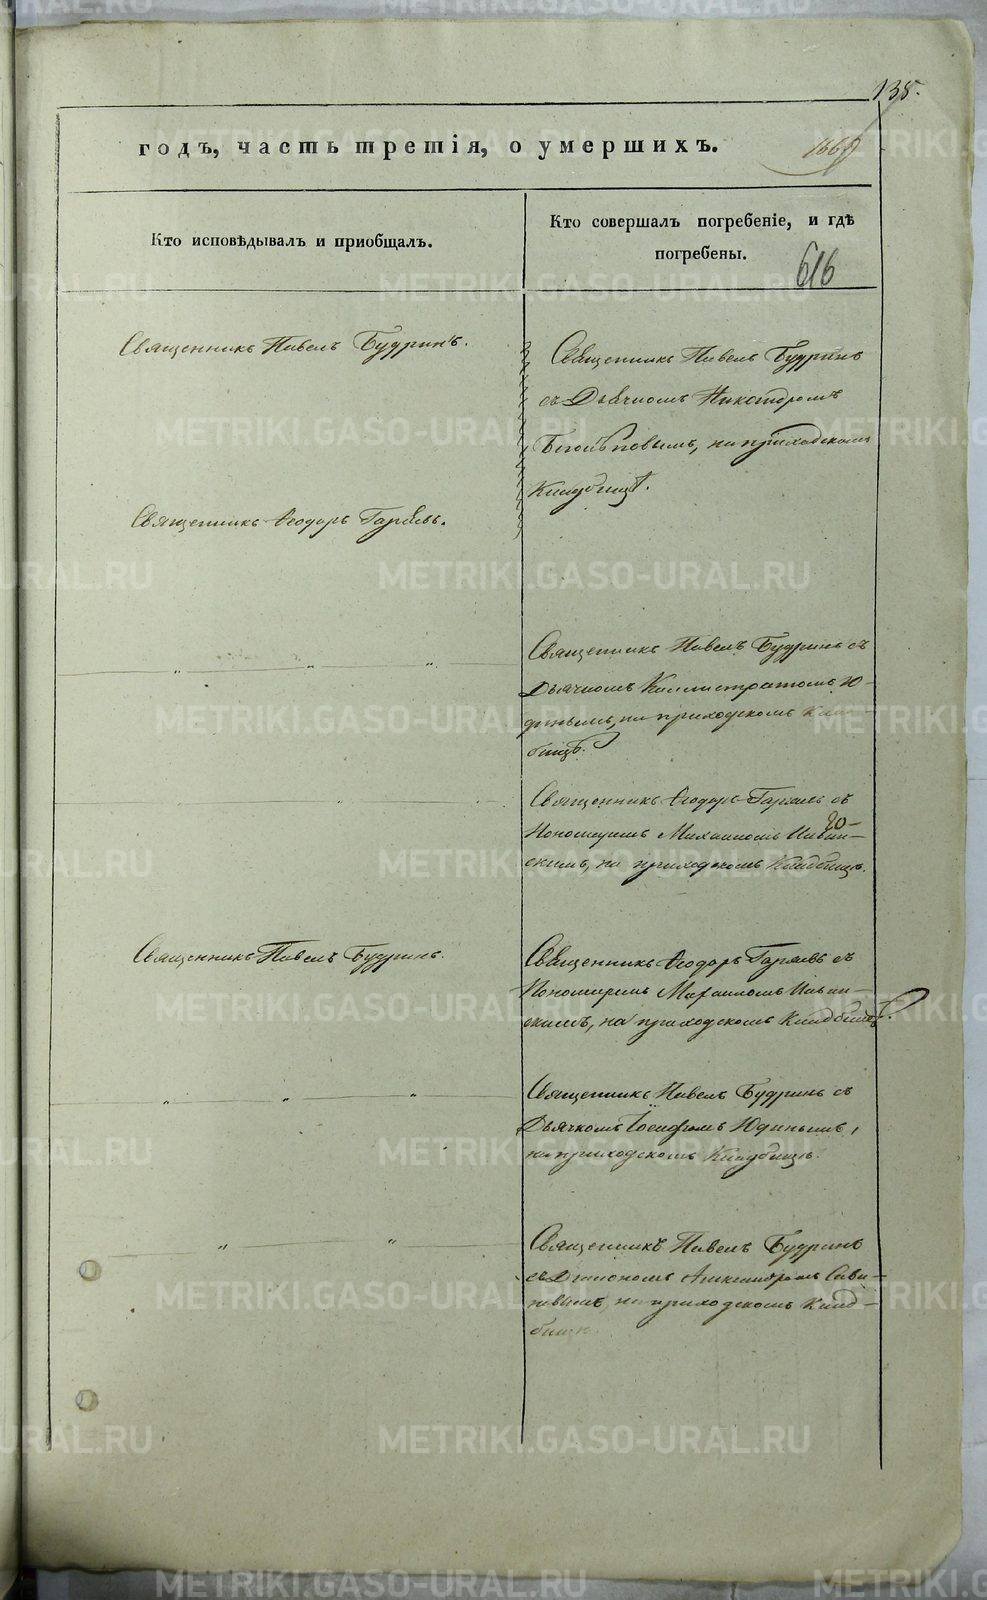 138.
годъ, часть третія, о умершихъ.
Кто исповѣдывалъ и пріобщалъ.
Кто совершалъ погребеніе, и гдѣ
погребены.
616
Священникъ Павелъ Будринъ.
Священникъ Павелъ Будринъ
съ Дьячкомъ Никандромъ
на приходскомъ
Кладбищѣ.
Священникъ Ѳеодоръ Гаряевъ.
Священникъ Павелъ Будринъ съ
Дьячкомъ Каллистратомъ Ю-
динымъ, на приходскомъ Клад-
бищѣ.
Священникъ Ѳеодоръ Гаряевъ съ
Пономаремъ Михаиломъ
скимъ, на приходскомъ Кладбищѣ.
Священникъ Павелъ Будринъ.
Священникъ Ѳеодоръ Гаряевъ съ
Пономаремъ Михаиломъ
скимъ, на приходскомъ Кладбищѣ.
Священникъ Павелъ Будринъ съ
Дьячкомъ Іосифомъ Юдинымъ,
на приходскомъ Кладбищѣ.
Священникъ Павелъ Будринъ
съ Діакономъ Александромъ Сави-
новымъ, на приходскомъ Клад-
бищѣ.
METRIKI.GASO-URAL.RU